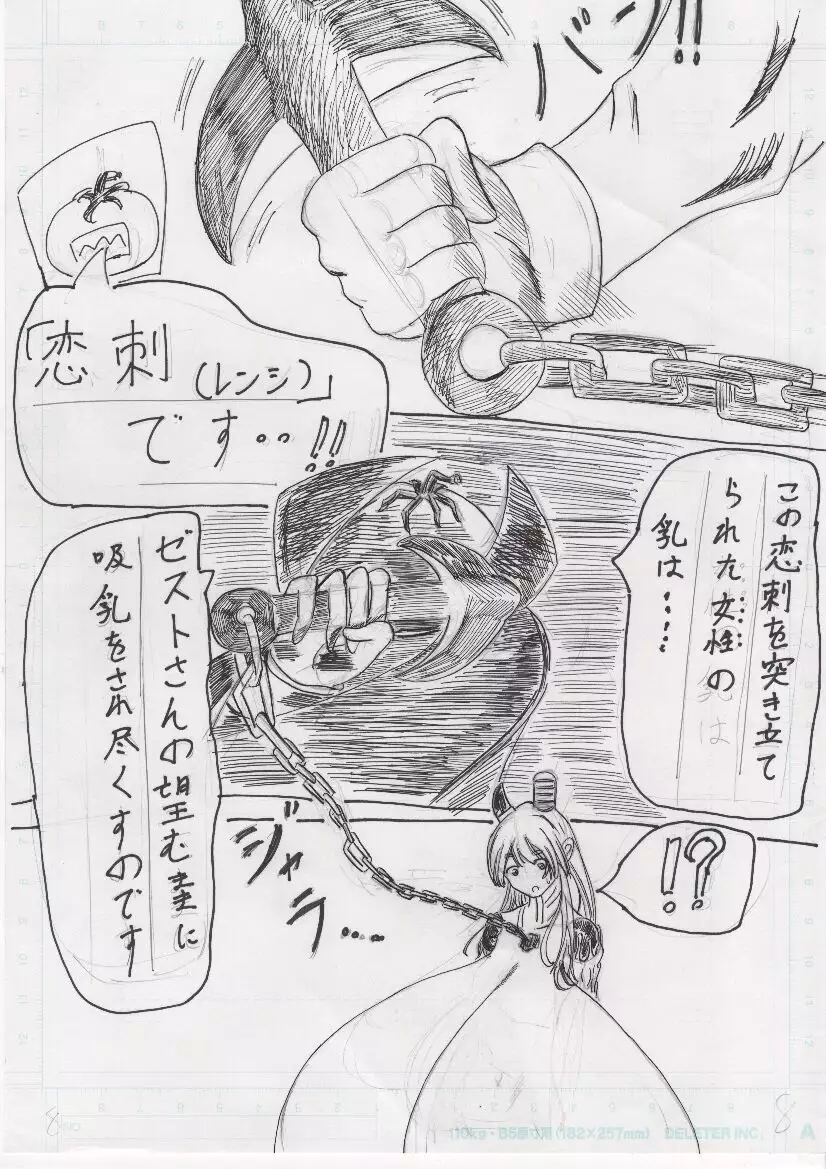 バーン!!
「恋刺(レンシ)」
です‥!!
この恋刺を突き立て
られた女性の
乳は‥‥
ゼストさんの望むままに
吸乳をされ尽くすのです
ジャラ‥‥
!?
8
8
110kg・B5原寸用(182×257mm) DELETER INC.
A